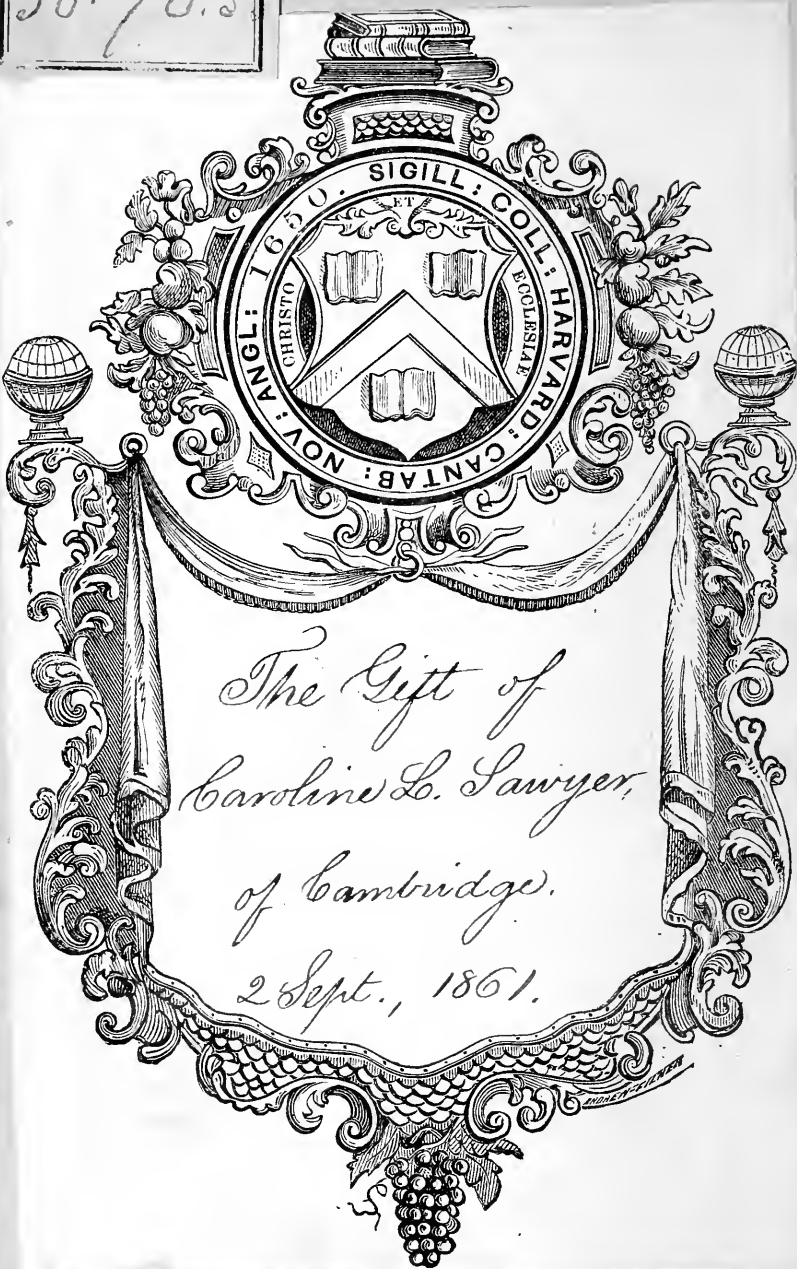 SIGILL: COLL: HARVARD: CANTAB: NOV: ANGL: 1650.
ET
CHRISTO
ECCLESIAE
The Gift of
Caroline L. Sawyer,
of Cambridge.
2 Sept., 1861.